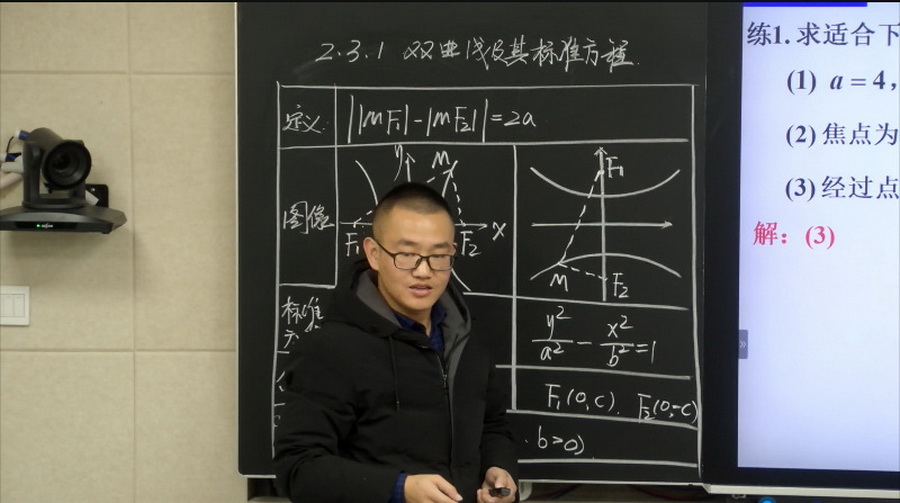 2.3.1 双曲线及其标准方程
定义 ||MF₁|-|MF₂||=2a
图像
y
M
F₁
F₂
x
F₁
M
F₂
标准
方
y²/a² - x²/b² =1
F₁(0,c). F₂(0,-c)
. b>0)
练1. 求适合下
(1) a = 4，
(2) 焦点为
(3) 经过点
解：(3)